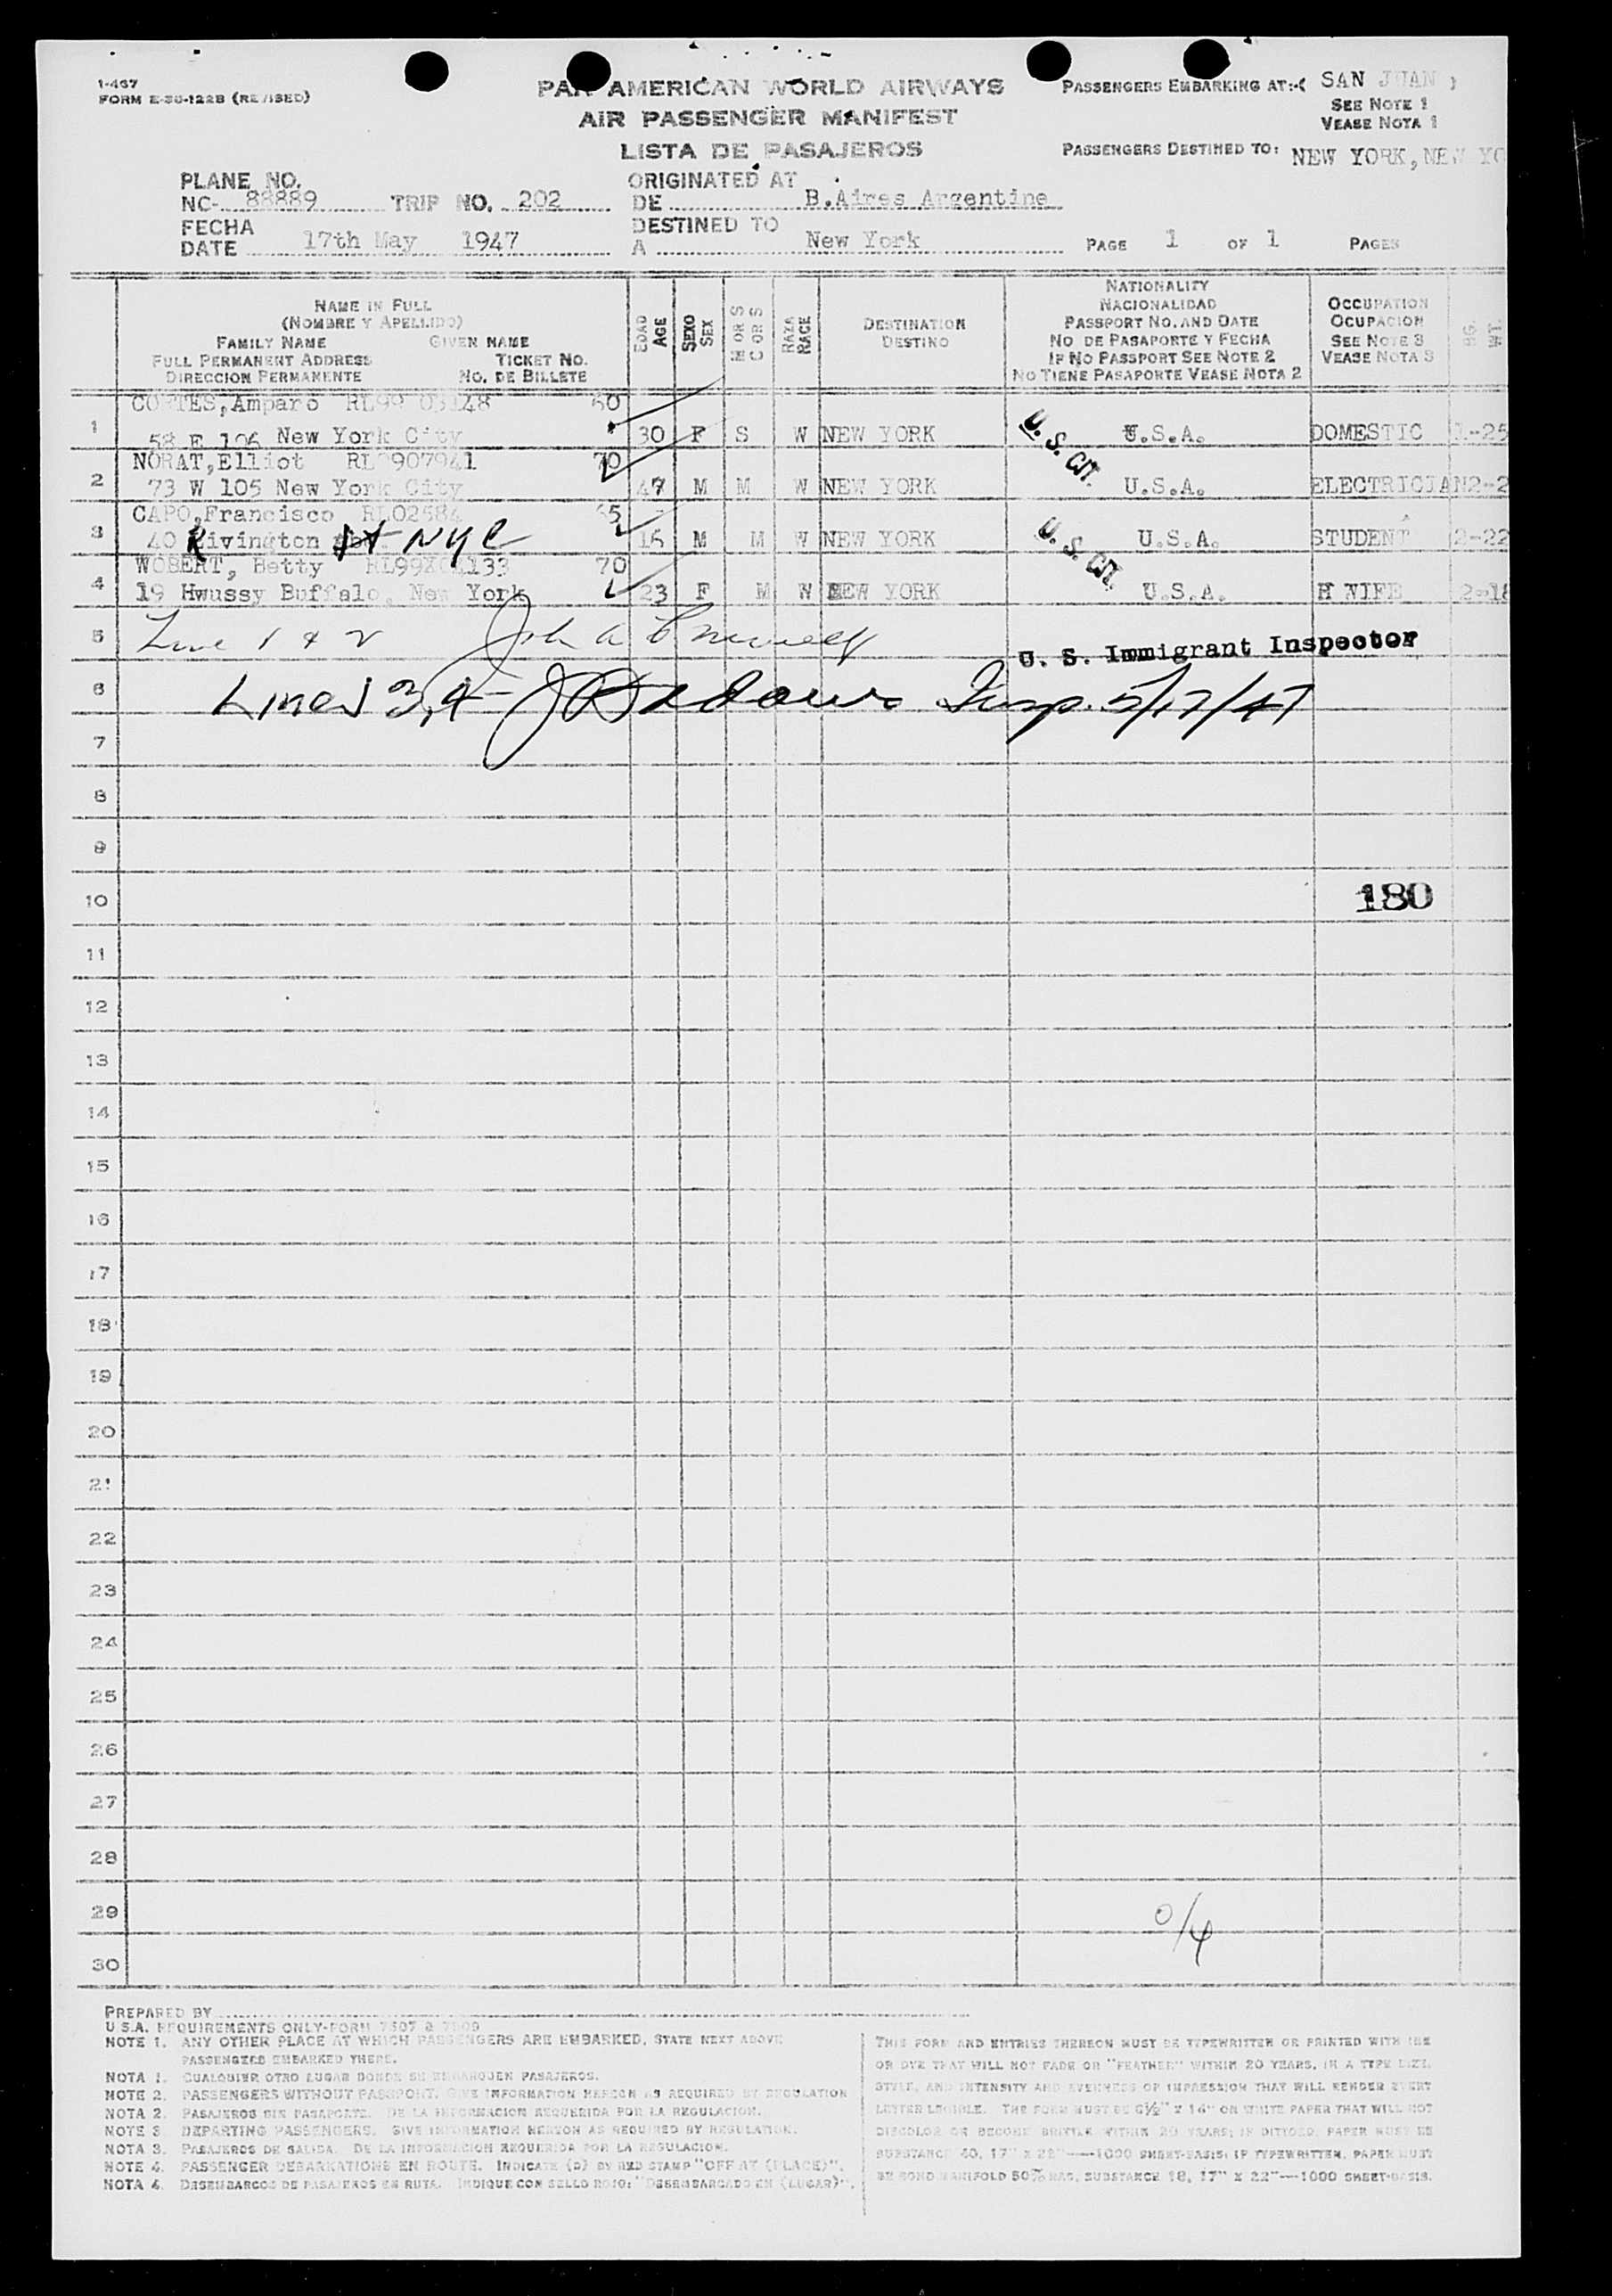 1-467
FORM E-30-122B (REVISED)
PAN AMERICAN WORLD AIRWAYS
AIR PASSENGER MANIFEST
LISTA DE PASAJEROS
PASSENGERS EMBARKING AT:-( SAN JUAN )
SEE NOTE 1
VEASE NOTA 1
PASSENGERS DESTINED TO: NEW YORK, NEW YO
PLANE NO.
NC- 88889 TRIP NO. 202
ORIGINATED AT
DE B.Aires Argentine
FECHA
DATE 17th May 1947
DESTINED TO
A New York
PAGE 1 OF 1 PAGES
NAME IN FULL
(NOMBRE Y APELLIDO)
FAMILY NAME GIVEN NAME
FULL PERMANENT ADDRESS TICKET NO.
DIRECCION PERMANENTE NO. DE BILLETE
EDAD
AGE
SEXO
SEX
M OR S
C OR S
RAZA
RACE
DESTINATION
DESTINO
NATIONALITY
NACIONALIDAD
PASSPORT NO. AND DATE
NO DE PASAPORTE Y FECHA
IF NO PASSPORT SEE NOTE 2
NO TIENE PASAPORTE VEASE NOTA 2
OCCUPATION
OCUPACION
SEE NOTE 3
VEASE NOTA 3
WT.
1 CORTES,Amparo 60
58 E 106 New York City 30 F S W NEW YORK U.S.A. DOMESTIC 1-25
U. S. CIT.
2 NORAT,Elliot 70
73 W 105 New York City 47 M M W NEW YORK U.S.A. ELECTRICIAN 2-2
3 CAPO,Francisco 65
40 Rivington St NYC 16 M M W NEW YORK U.S.A. STUDENT 2-22
U. S. CIT.
4 WOBERT, Betty 70
19 Hwussy Buffalo, New York 23 F M W NEW YORK U.S.A. H WIFE 2-18
5 Line 1 & 2 John A
U. S. Immigrant Inspector
6 Lines 3,4 - Insp. 5/17/47
7
8
9
10 180
11
12
13
14
15
16
17
18
19
20
21
22
23
24
25
26
27
28
29
0/4
30
PREPARED BY
U S.A. REQUIREMENTS ONLY-FORM 7507 & 7509
NOTE 1. ANY OTHER PLACE AT WHICH PASSENGERS ARE EMBARKED, STATE NEXT ABOVE
PASSENGERS EMBARKED THERE.
NOTA 1. CUALQUIER OTRO LUGAR DONDE SE EMBARQUEN PASAJEROS.
NOTE 2. PASSENGERS WITHOUT PASSPORT. GIVE INFORMATION HEREON AS REQUIRED BY REGULATION
NOTA 2. PASAJEROS SIN PASAPORTE. DE LA INFORMACION REQUERIDA POR LA REGULACION.
NOTE 3. DEPARTING PASSENGERS. GIVE INFORMATION HEREON AS REQUIRED BY REGULATION.
NOTA 3. PASAJEROS DE SALIDA. DE LA INFORMACION REQUERIDA POR LA REGULACION.
NOTE 4. PASSENGER DEBARKATIONS EN ROUTE. INDICATE (D) BY RED STAMP "OFF AT (PLACE)".
NOTA 4. DESEMBARCOS DE PASAJEROS EN RUTA. INDIQUE CON SELLO ROJO: "DESEMBARCADO EN (LUGAR)".
THIS FORM AND ENTRIES THEREON MUST BE TYPEWRITTEN OR PRINTED WITH INK
OR DYE THAT WILL NOT FADE OR "FEATHER" WITHIN 20 YEARS, IN A TYPE SIZE,
STYLE, AND INTENSITY AND EVENNESS OF IMPRESSION THAT WILL RENDER EVERY
LETTER LEGIBLE. THE FORM MUST BE 8½" X 14" OR WHITE PAPER THAT WILL NOT
DISCOLOR OR BECOME BRITTLE WITHIN 20 YEARS; IF DITTOED, PAPER MUST BE
SUBSTANCE 40, 17" X 28"—1000 SHEET-BASIS; IF TYPEWRITTEN, PAPER MUST
BE BOND MANIFOLD 50% RAG, SUBSTANCE 18, 17" X 22"—1000 SHEET-BASIS.